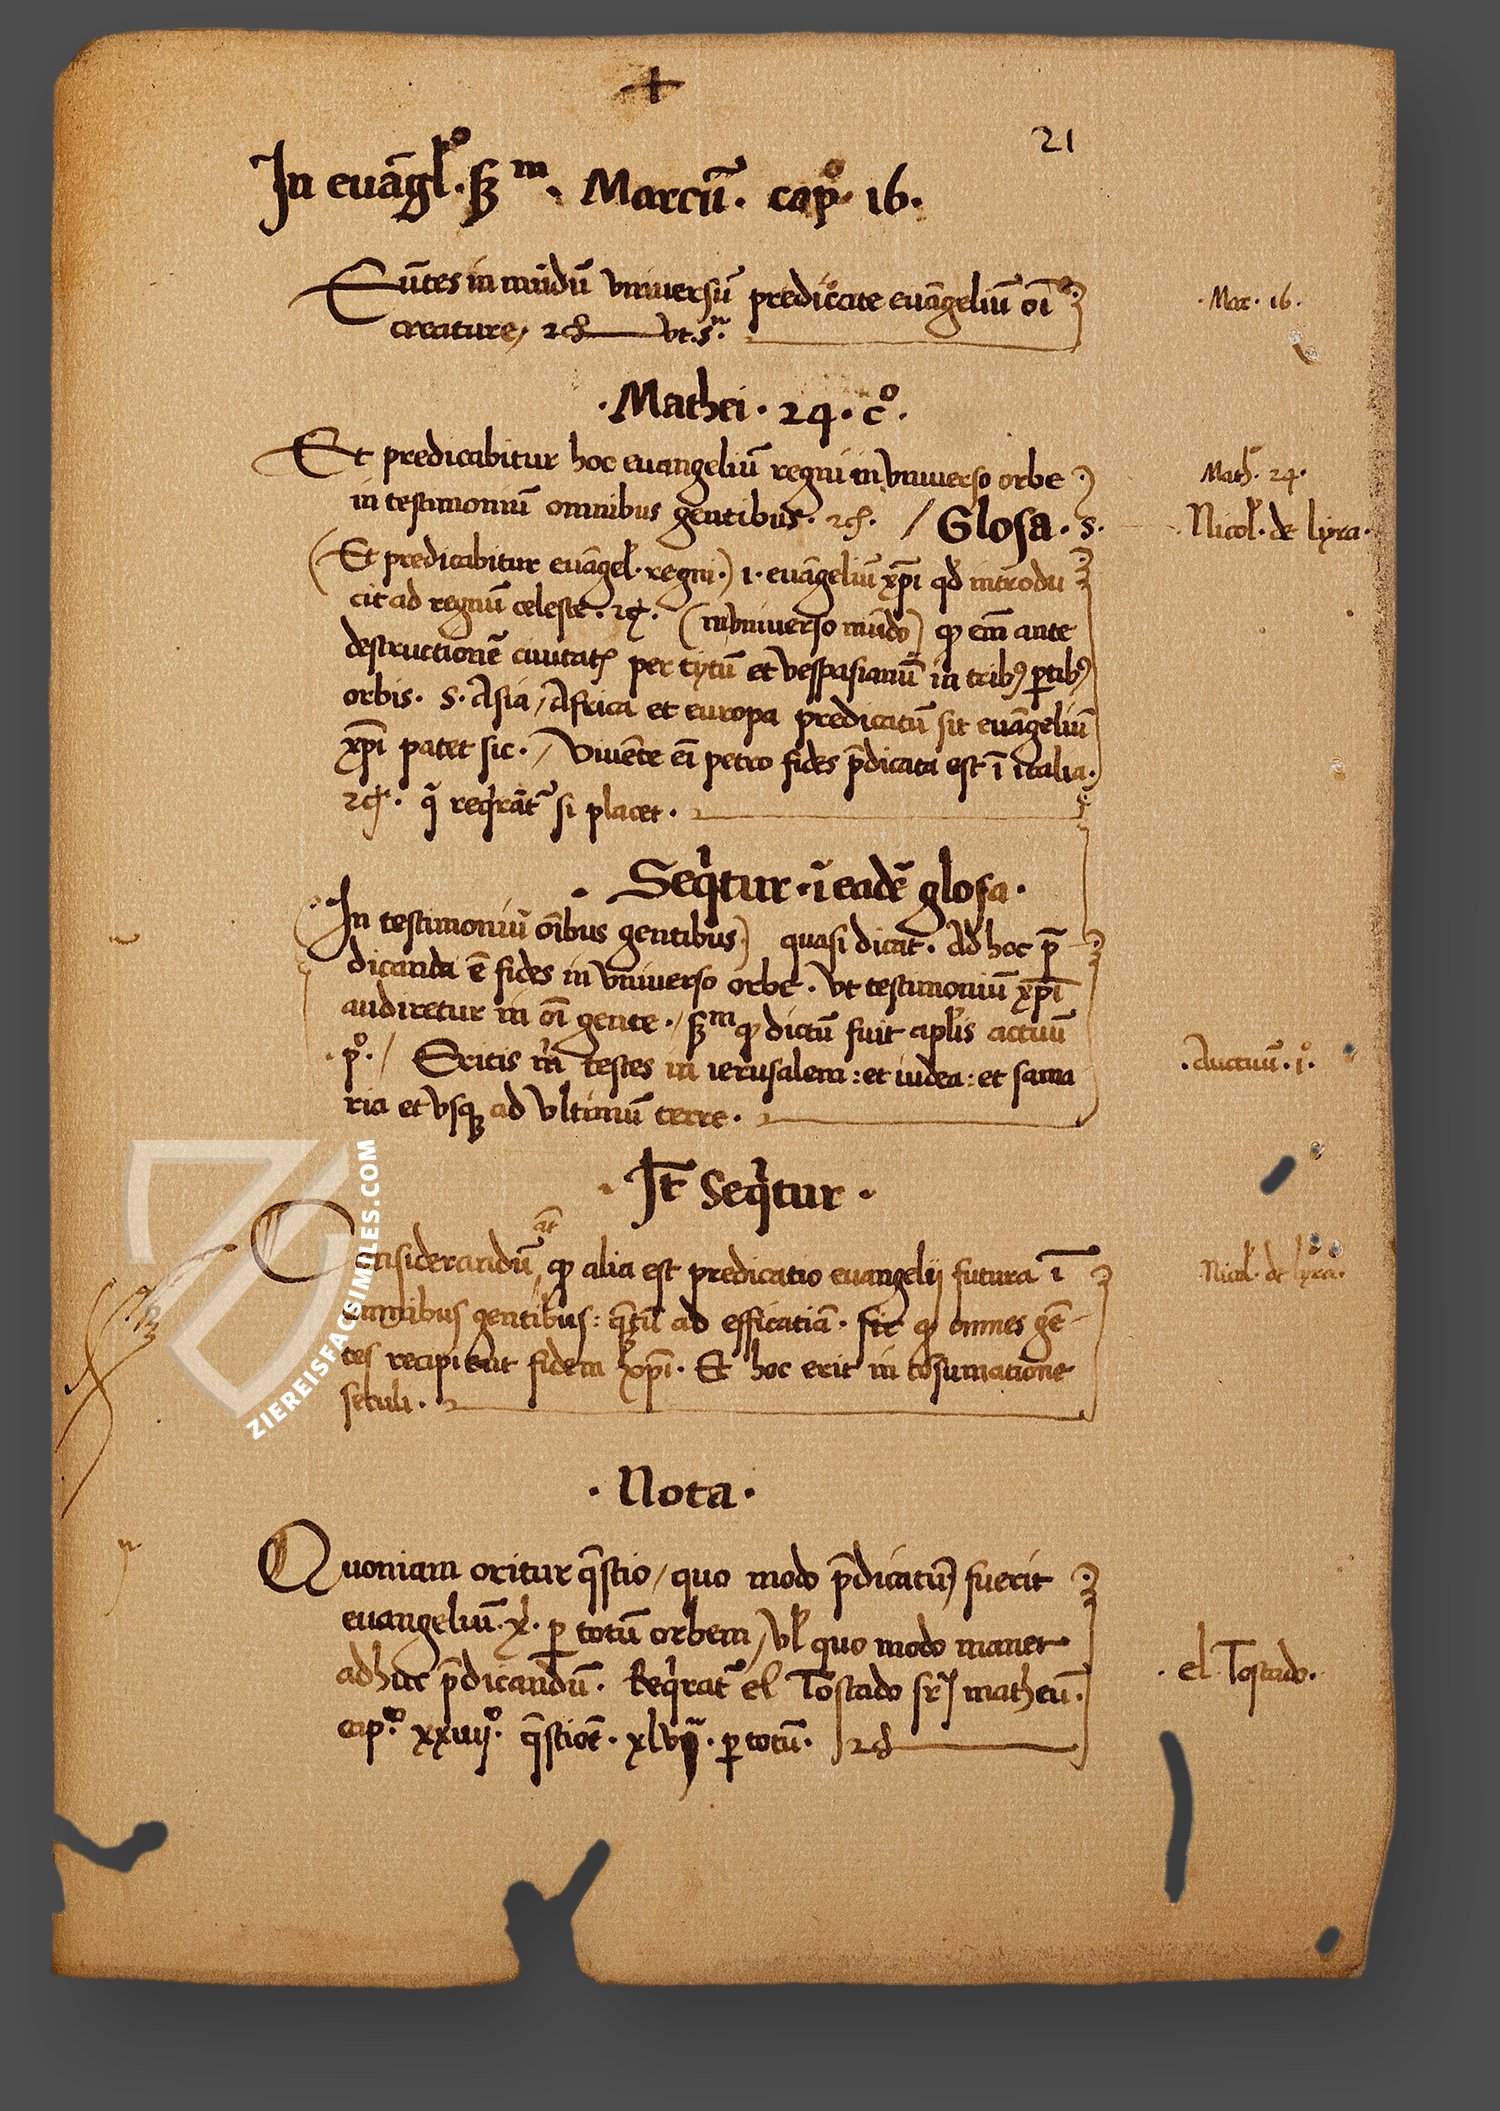 21
In evāgl̄o. sz m. Marcū. capo. 16.
Eūtes in mūdū vniuersū predicate euāgeliū oī
creature, 2c̄ vt. sa.
Mar. 16.
. Mathei. 24. co.
Et predicabitur hoc euangeliū regni in vniuerso orbe
in testimoniū omnibus gentibus. 2c̄. / Glosa. s.
Math. 24.
Nicol. de lyra.
(Et predicabitur euāgel. regni.) i. euāgeliū xp̄i qd̄ introdu
cit ad regnū celeste. 2c̄. (in vniuerso mūdo) qp em̄ ante
destructionē ciuitatꝭ per tytū et vespasianū in tribꝰ ꝑtibꝰ
orbis. s. Asia / Africa et europa predicatū sit euāgeliū
xp̄i patet sic. / Viuēte eī petro fides p̄dicata est ī italia.
2c̄. q̄ reqrāt᷑ si placet.
. Seqtur. ī eadē glosa.
In testimoniū oībus gentibus) quasi dicat. Ad hoc p̄
dicanda ē fides in vniuerso orbe. vt testimoniū xp̄i
audiretur in oī gente. / szm qp dictū fuit apl̄is actuū
. po. / Eritis m̄ testes in ierusalem: et iudea: et sama
ria et vsqꝫ ad vltimū terre.
. Auctuū. 1o.
. It̄ Seqtur.
at̄
Considerandū qp alia est predicatio euangelij futura ī
omnibus gentibus: q̄tū ad efficatiā. sic qp omnes gē
tes recipient fidem xp̄i. Et hoc erit in cōsumatione
seculi.
Nicol. de lyra.
. Nota.
Quoniam oritur q̄stio / quo modo p̄dicatū fuerit
euangeliū. xi. ꝑ totū orbem / vl̄ quo modo manet
adhuc p̄dicandū. Reqrat᷑ el Tostado sr̄ matheū.
capo. xxiiijo. q̄stiōe. xlvij. ꝑ totū. 2c̄
. el Tostado.
ZIEREISFACSIMILES.COM